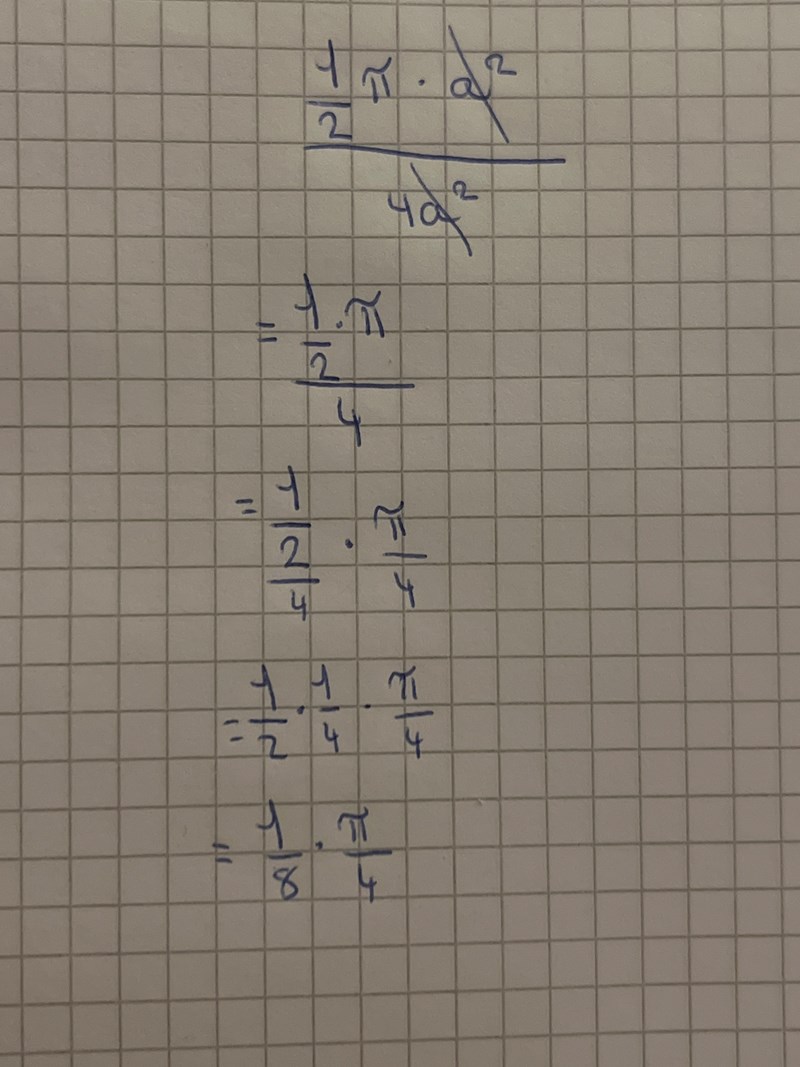 (1/2 π · a²) / (4a²)
= (1/2 · π) / 4
= (1/2)/4 · π/4
= 1/2 · 1/4 · π/4
= 1/8 · π/4